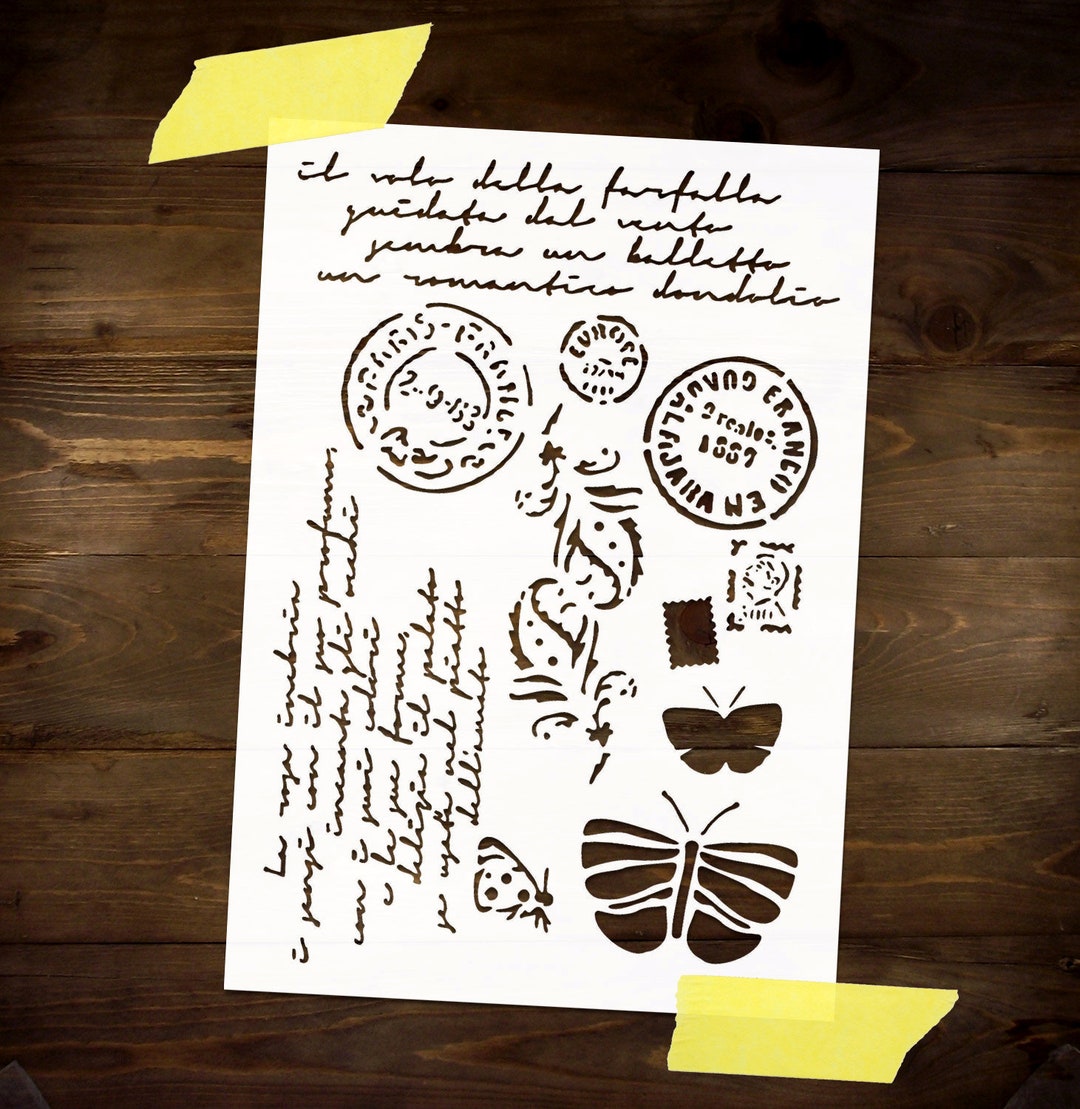 il volo della farfalla
guidata dal vento
sembra un balletto
un romantico dondolio
EUROPE
2-9-83
GUADALAJARA FRANCO EN
2 reales.
1867
La rosa inebria
i sensi con il suo profumo,
incanta gli occhi
con i suoi colori
e le sue forme,
delizia il palato
se usata nel piatto
dell'amato